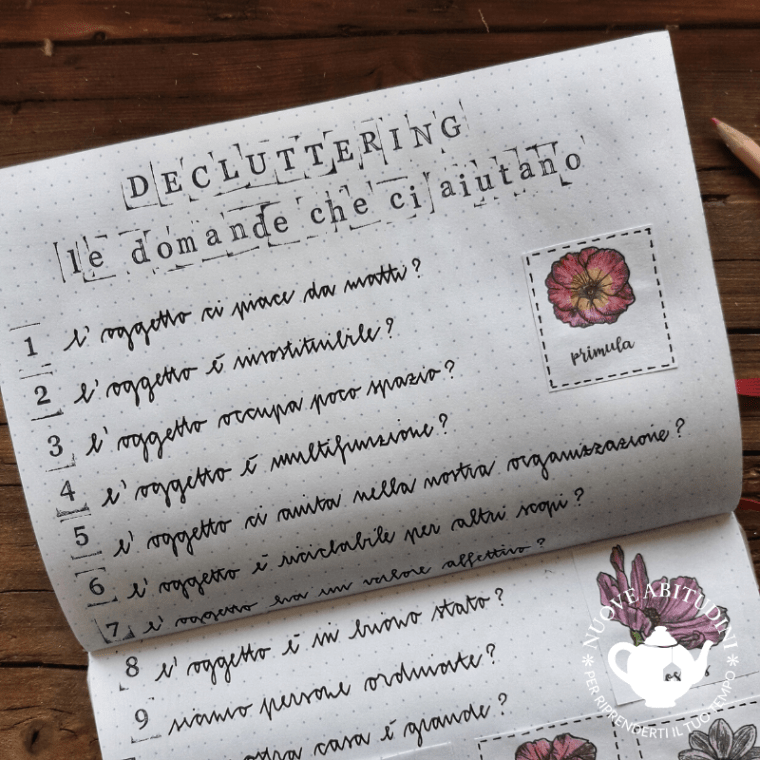 DECLUTTERING
le domande che ci aiutano
1 l'oggetto ci piace da matti?
2 l'oggetto è insostituibile?
3 l'oggetto occupa poco spazio?
4 l'oggetto è multifunzione?
5 l'oggetto ci aiuta nella nostra organizzazione?
6 l'oggetto è riciclabile per altri scopi?
7 l'oggetto ha un valore affettivo?
8 l'oggetto è in buono stato?
9 siamo persone ordinate?
casa è grande?
primula
NUOVE ABITUDINI
PER RIPRENDERTI IL TUO TEMPO